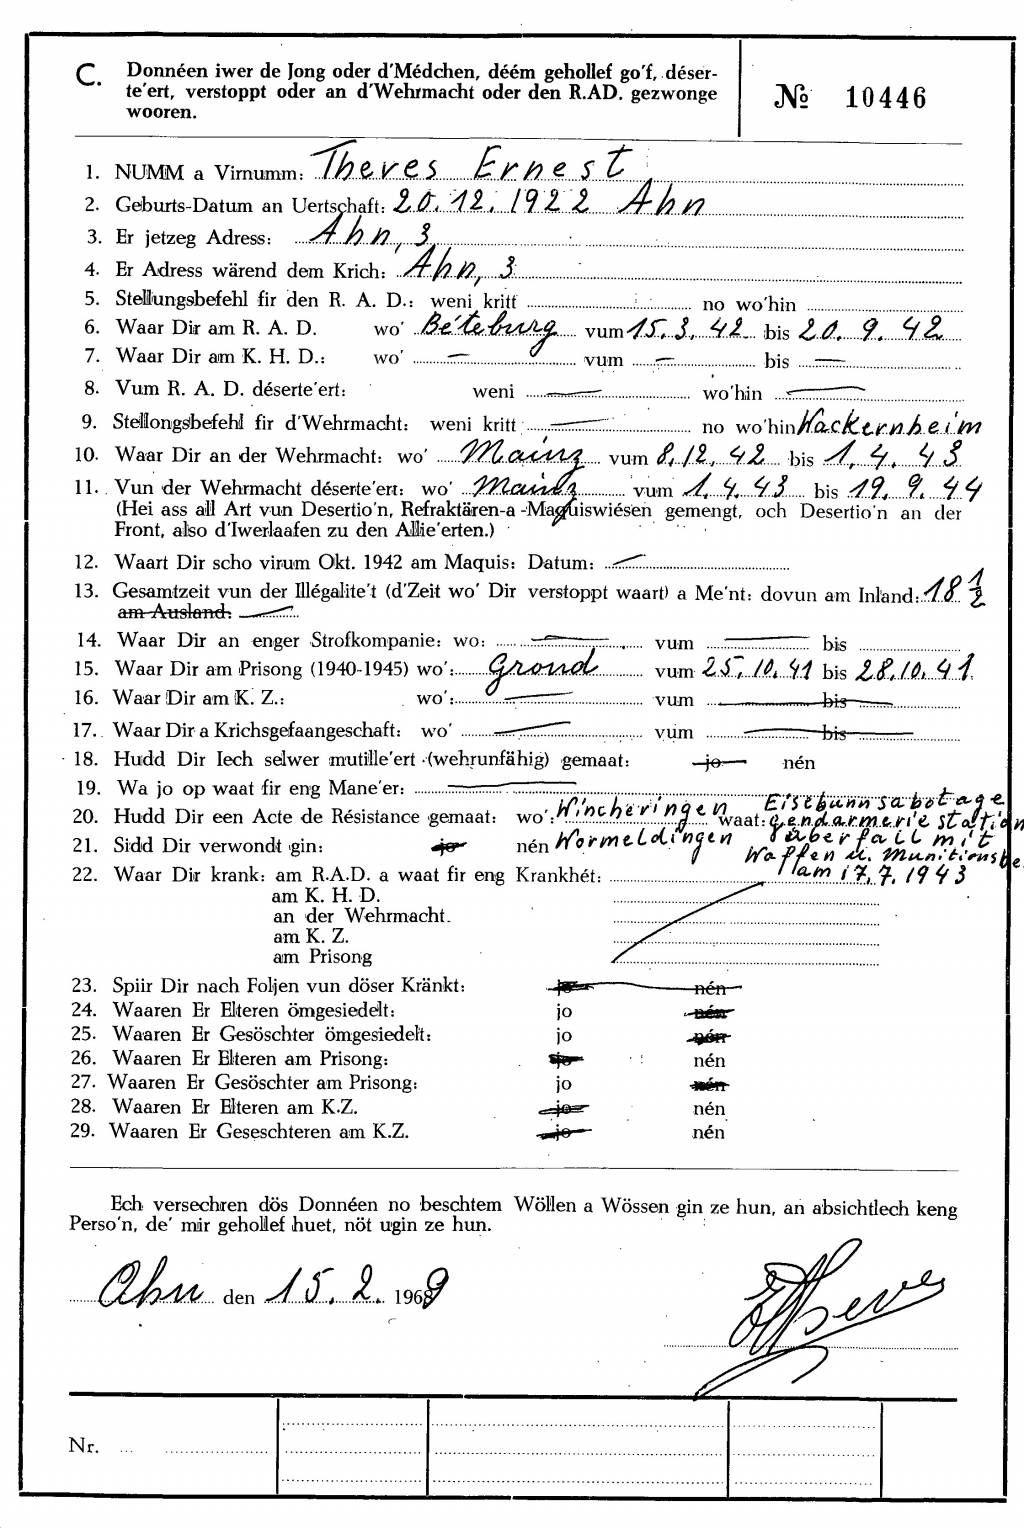 C. Donnéen iwer de Jong oder d'Médchen, déém gehollef go'f, déser-
te'ert, verstoppt oder an d'Wehrmacht oder den R.AD. gezwonge
wooren.
№ 10446
1. NUMM a Virnumm: Theves Ernest
2. Geburts-Datum an Uertschaft: 20.12.1922 Ahn
3. Er jetzeg Adress: Ahn, 3
4. Er Adress wärend dem Krich: Ahn, 3
5. Stellungsbefehl fir den R. A. D.: weni kritt no wo'hin
6. Waar Dir am R. A. D. wo' Béteburg vum 15.3.42 bis 20.9.42
7. Waar Dir am K. H. D.: wo' — vum — bis —
8. Vum R. A. D. déserte'ert: weni — wo'hin —
9. Stellongsbefehl fir d'Wehrmacht: weni kritt — no wo'hin Wackernheim
10. Waar Dir an der Wehrmacht: wo' Mainz vum 8.12.42 bis 1.4.43
11. Vun der Wehrmacht déserte'ert: wo' Mainz vum 1.4.43 bis 19.9.44
(Hei ass all Art vun Desertio'n, Refraktären-a -Maquiswiésen gemengt, och Desertio'n an der
Front, also d'Iwerlaafen zu den Allie'erten.)
12. Waart Dir scho virum Okt. 1942 am Maquis: Datum: —
13. Gesamtzeit vun der Illégalite't (d'Zeit wo' Dir verstoppt waart) a Me'nt: dovun am Inland: 18 1/2
am Ausland: —
14. Waar Dir an enger Strofkompanie: wo: — vum — bis
15. Waar Dir am Prisong (1940-1945) wo': Grond vum 25.10.41 bis 28.10.41.
16. Waar Dir am K. Z.: wo': — vum — bis —
17. Waar Dir a Krichsgefaangeschaft: wo' — vum — bis —
18. Hudd Dir Iech selwer mutille'ert (wehrunfähig) gemaat: jo nén
19. Wa jo op waat fir eng Mane'er: —
20. Hudd Dir een Acte de Résistance gemaat: wo': Wincheringen waat: Eisebunnsabotage
gendarmerie station
21. Sidd Dir verwondt gin: jo nén Wormeldingen überfall mit
Waffen u. Munitionsbe
22. Waar Dir krank: am R.A.D. a waat fir eng Krankhét: am 17.7.1943
am K. H. D.
an der Wehrmacht.
am K. Z.
am Prisong
23. Spiir Dir nach Foljen vun döser Kränkt: jo nén
24. Waaren Er Elteren ömgesiedelt: jo nén
25. Waaren Er Gesöschter ömgesiedelt: jo nén
26. Waaren Er Elteren am Prisong: jo nén
27. Waaren Er Gesöschter am Prisong: jo nén
28. Waaren Er Elteren am K.Z. jo nén
29. Waaren Er Geseschteren am K.Z. jo nén
Ech versechren dös Donnéen no beschtem Wöllen a Wössen gin ze hun, an absichtlech keng
Perso'n, de' mir gehollef huet, nöt ugin ze hun.
Ahn den 15.2. 1969
E Theves
Nr.